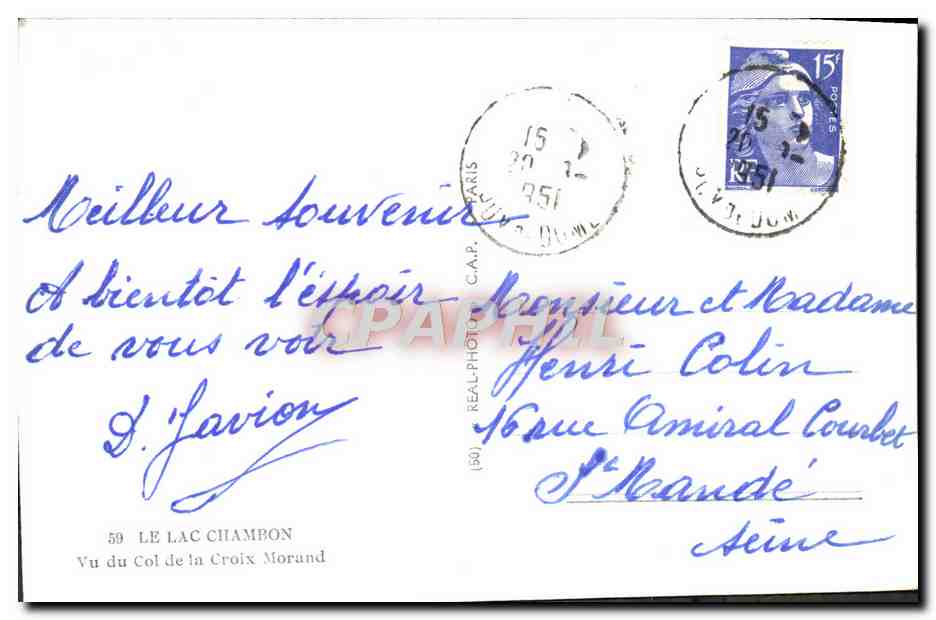 Meilleur souvenir
A bientôt l'espoir
de vous voir
59 LE LAC CHAMBON
Vu du Col de la Croix Morand
(60) REAL-PHOTO C.A.P. PARIS
15
20
1951
PUY-DE-DOME
15
20
1951
PUY-DE-DOME
15F
POSTES
RF
Monsieur et Madame
Henri Colin
16 rue Amiral Courbet
St Mandé
Seine
CPAPHIL